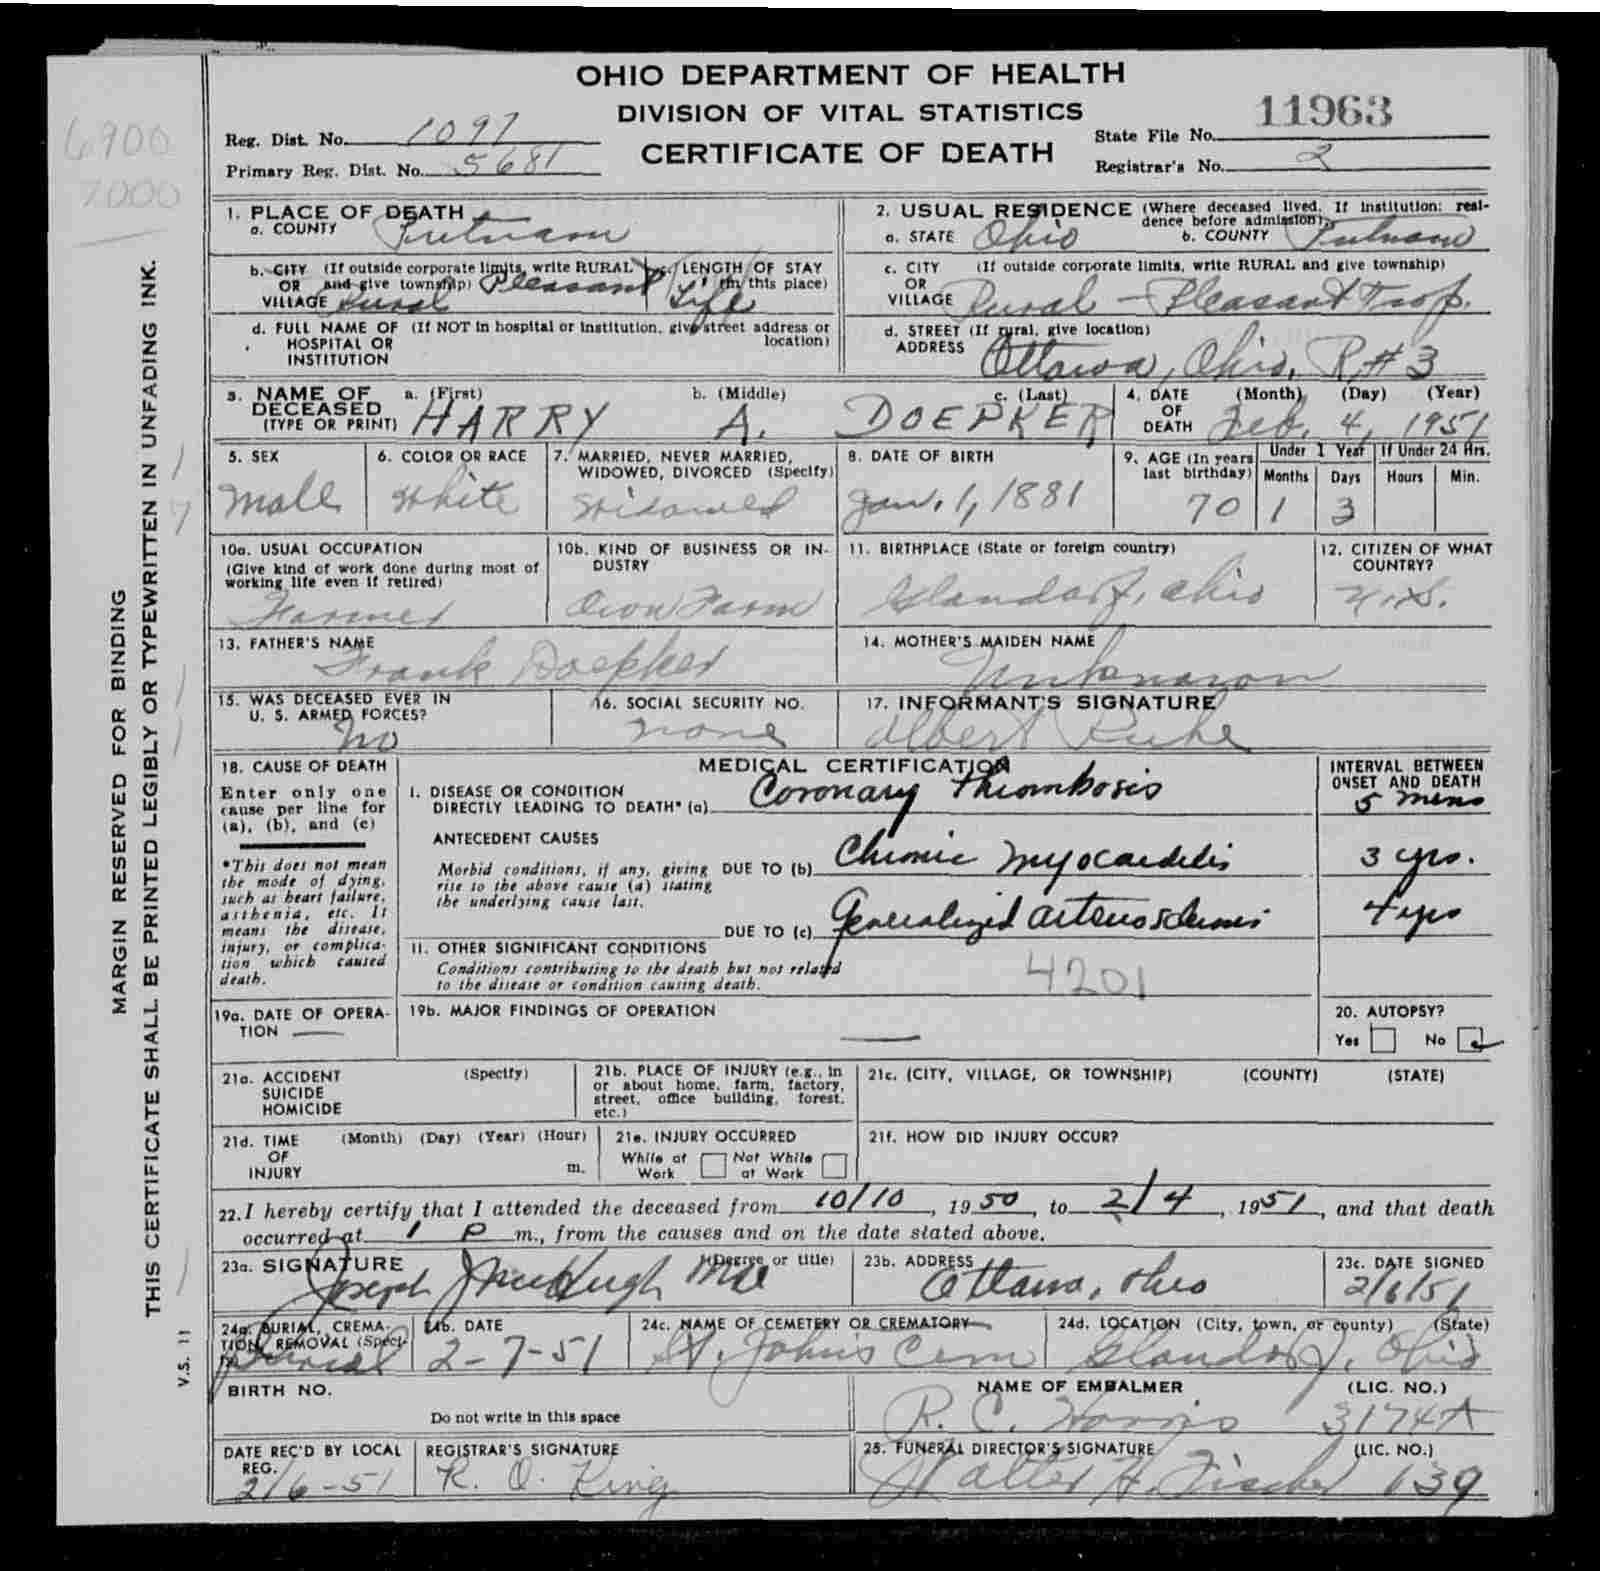 OHIO DEPARTMENT OF HEALTH
DIVISION OF VITAL STATISTICS
CERTIFICATE OF DEATH
6900
7000
Reg. Dist. No. 1097
Primary Reg. Dist. No. 5681
State File No. 11963
Registrar's No. 2
MARGIN RESERVED FOR BINDING
THIS CERTIFICATE SHALL BE PRINTED LEGIBLY OR TYPEWRITTEN IN UNFADING INK.
V.S. 11
1. PLACE OF DEATH
a. COUNTY Putnam
b. CITY (If outside corporate limits, write RURAL
OR and give township) Pleasant
VILLAGE Rural
c. LENGTH OF STAY
(in this place)
Life
d. FULL NAME OF (If NOT in hospital or institution, give street address or
HOSPITAL OR location)
INSTITUTION
2. USUAL RESIDENCE (Where deceased lived. If institution: resi-
dence before admission).
a. STATE Ohio b. COUNTY Putnam
c. CITY (If outside corporate limits, write RURAL and give township)
OR
VILLAGE Rural - Pleasant Twp.
d. STREET (If rural, give location)
ADDRESS Ottawa, Ohio, R.#3
3. NAME OF a. (First) b. (Middle) c. (Last)
DECEASED
(TYPE OR PRINT) HARRY A. DOEPKER
4. DATE (Month) (Day) (Year)
OF
DEATH Feb. 4, 1951
5. SEX
Male
6. COLOR OR RACE
White
7. MARRIED, NEVER MARRIED,
WIDOWED, DIVORCED (Specify)
Widowed
8. DATE OF BIRTH
Jan. 1, 1881
9. AGE (In years
last birthday)
70
Under 1 Year
Months Days
1 3
If Under 24 Hrs.
Hours Min.
10a. USUAL OCCUPATION
(Give kind of work done during most of
working life even if retired)
Farmer
10b. KIND OF BUSINESS OR IN-
DUSTRY
Own Farm
11. BIRTHPLACE (State or foreign country)
Glandorf, Ohio
12. CITIZEN OF WHAT
COUNTRY?
U.S.
13. FATHER'S NAME
Frank Doepker
14. MOTHER'S MAIDEN NAME
Unknown
15. WAS DECEASED EVER IN
U. S. ARMED FORCES?
No
16. SOCIAL SECURITY NO.
none
17. INFORMANT'S SIGNATURE
Albert Ruhe
18. CAUSE OF DEATH
Enter only one
cause per line for
(a), (b), and (c)
*This does not mean
the mode of dying,
such as heart failure,
asthenia, etc. It
means the disease,
injury, or complica-
tion which caused
death.
MEDICAL CERTIFICATION
I. DISEASE OR CONDITION
DIRECTLY LEADING TO DEATH* (a) Coronary Thrombosis
ANTECEDENT CAUSES
Morbid conditions, if any, giving
rise to the above cause (a) stating
the underlying cause last.
DUE TO (b) Chronic myocarditis
DUE TO (c) Generalized arteriosclerosis
INTERVAL BETWEEN
ONSET AND DEATH
5 mins
3 yrs.
4 yrs
II. OTHER SIGNIFICANT CONDITIONS
Conditions contributing to the death but not related
to the disease or condition causing death.
4201
19a. DATE OF OPERA-
TION —
19b. MAJOR FINDINGS OF OPERATION
—
20. AUTOPSY?
Yes No
21a. ACCIDENT (Specify)
SUICIDE
HOMICIDE
21b. PLACE OF INJURY (e.g., in
or about home, farm, factory,
street, office building, forest,
etc.)
21c. (CITY, VILLAGE, OR TOWNSHIP) (COUNTY) (STATE)
21d. TIME (Month) (Day) (Year) (Hour)
OF
INJURY m.
21e. INJURY OCCURRED
While at Not While
Work at Work
21f. HOW DID INJURY OCCUR?
22. I hereby certify that I attended the deceased from 10/10, 1950, to 2/4, 1951, and that death
occurred at 1 P m., from the causes and on the date stated above.
23a. SIGNATURE (Degree or title)
Joseph
23b. ADDRESS
Ottawa, Ohio
23c. DATE SIGNED
2/6/51
24a. BURIAL, CREMA-
TION, REMOVAL (Speci-
fy)
Burial
24b. DATE
2-7-51
24c. NAME OF CEMETERY OR CREMATORY
St. John's Cem
24d. LOCATION (City, town, or county) (State)
Glandorf, Ohio
BIRTH NO.
Do not write in this space
NAME OF EMBALMER (LIC. NO.)
R. C. Harris 3174A
DATE REC'D BY LOCAL
REG.
2/6-51
REGISTRAR'S SIGNATURE
R. O. King
25. FUNERAL DIRECTOR'S SIGNATURE (LIC. NO.)
Walter H. Fischer 139